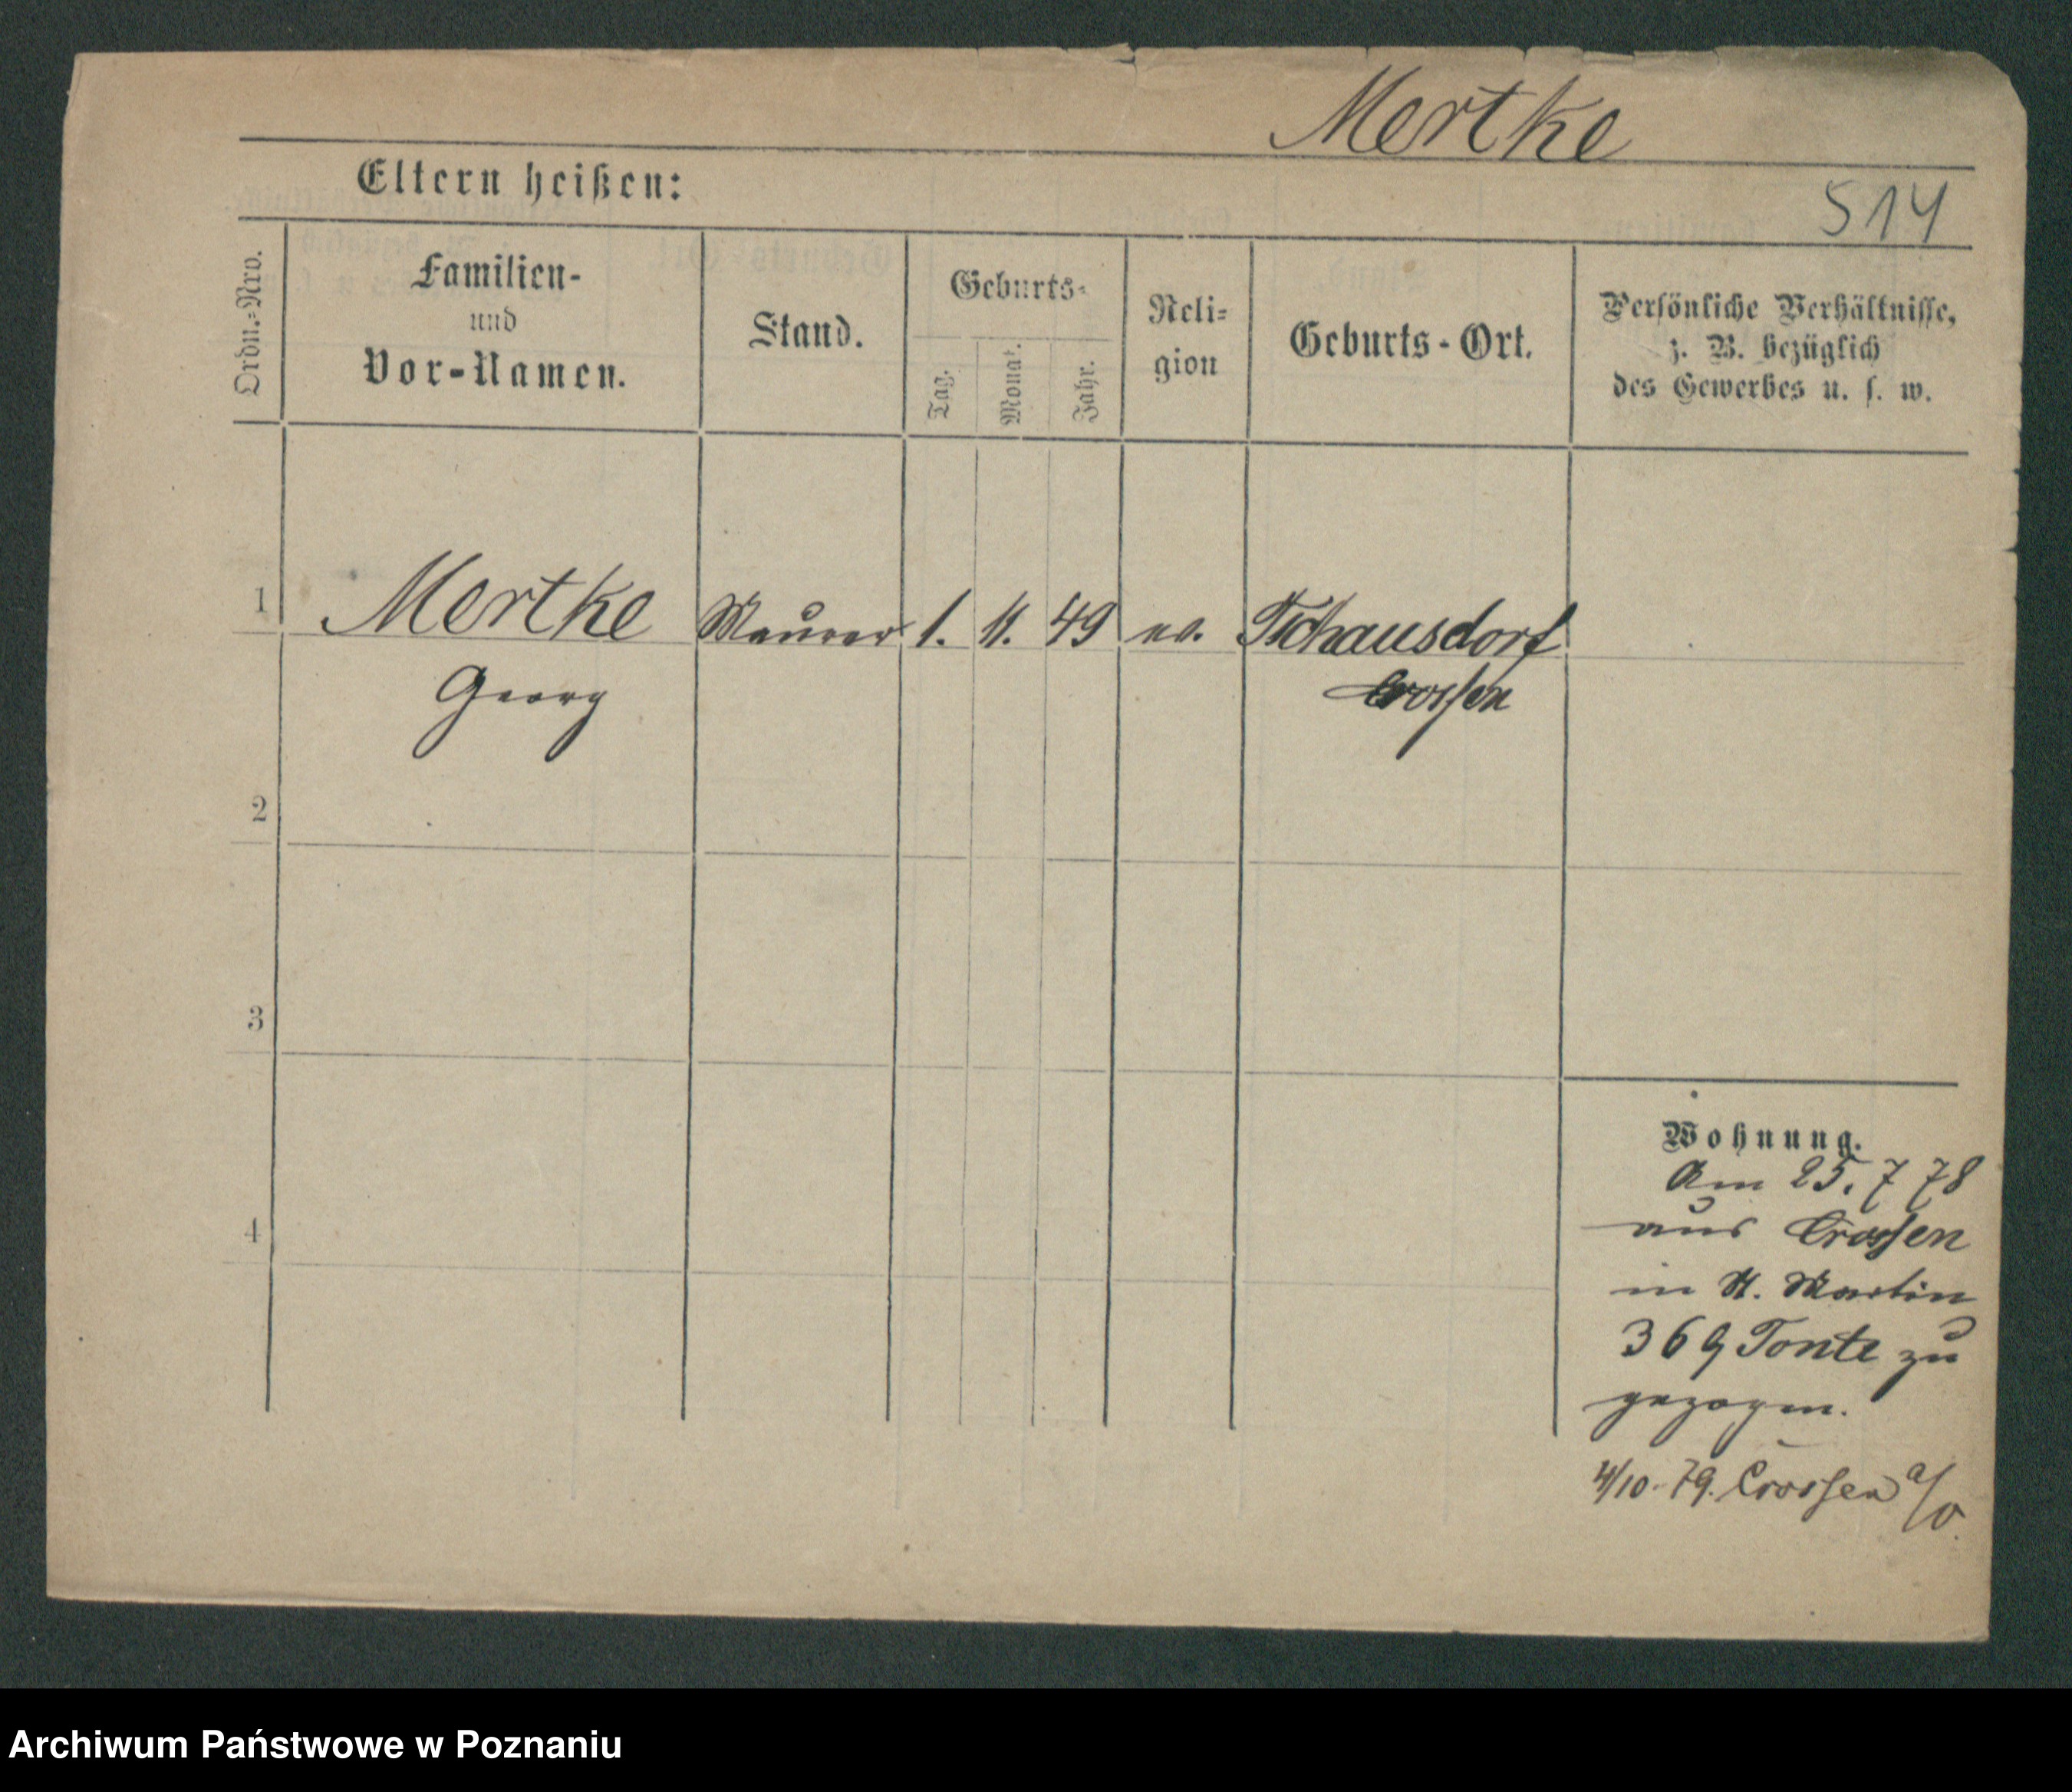 Mertke
Eltern heißen:
514
Ordn.-Nro.
Familien-
und
Vor-Namen.
Stand.
Geburts-
Tag.
Monat.
Jahr.
Reli-
gion
Geburts-Ort.
Persönliche Verhältnisse,
z. B. bezüglich
des Gewerbes u. s. w.
1 Mertke Maurer 1. 11. 49 ev. Tschausdorf
Georg Crossen
2
3
4
Wohnung.
Am 25. 7 78
aus Crossen
in St. Martin
369 Tonte zu
gezogen.
4/10. 79. Crossen a/O.
Archiwum Państwowe w Poznaniu